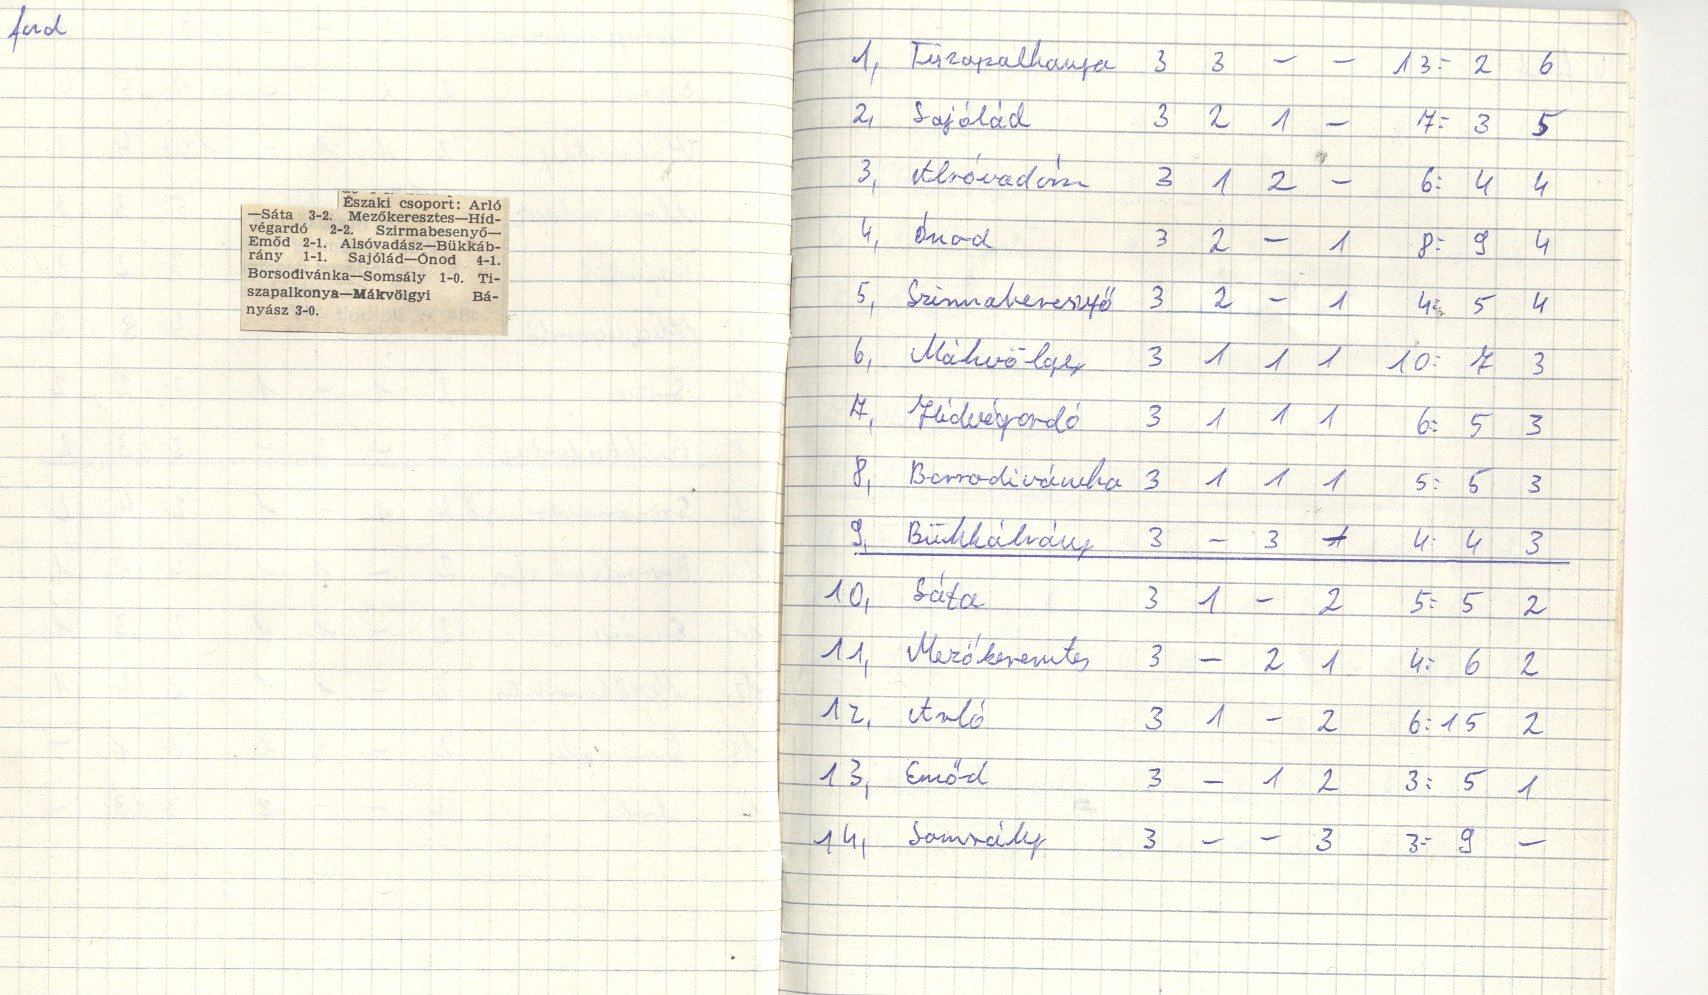 ford
Északi csoport: Arló
—Sáta 3-2. Mezőkeresztes—Híd-
végardó 2-2. Szirmabesenyő—
Emőd 2-1. Alsóvadász—Bükkáb-
rány 1-1. Sajólád—Ónod 4-1.
Borsodivánka—Somsály 1-0. Ti-
szapalkonya—Mákvölgyi Bá-
nyász 3-0.
1, Tiszapalkonya 3 3 – – 13: 2 6
2, Sajólád 3 2 1 – 7: 3 5
3, Alsóvadász 3 1 2 – 6: 4 4
4, Ónod 3 2 – 1 8: 9 4
5, Szirmabesenyő 3 2 – 1 4: 5 4
6, Mákvölgy 3 1 1 1 10: 7 3
7, Hídvégardó 3 1 1 1 6: 5 3
8, Borsodivánka 3 1 1 1 5: 5 3
9, Bükkábrány 3 – 3 – 4: 4 3
10, Sáta 3 1 – 2 5: 5 2
11, Mezőkeresztes 3 – 2 1 4: 6 2
12, Arló 3 1 – 2 6: 15 2
13, Emőd 3 – 1 2 3: 5 1
14, Somsály 3 – – 3 3: 9 –